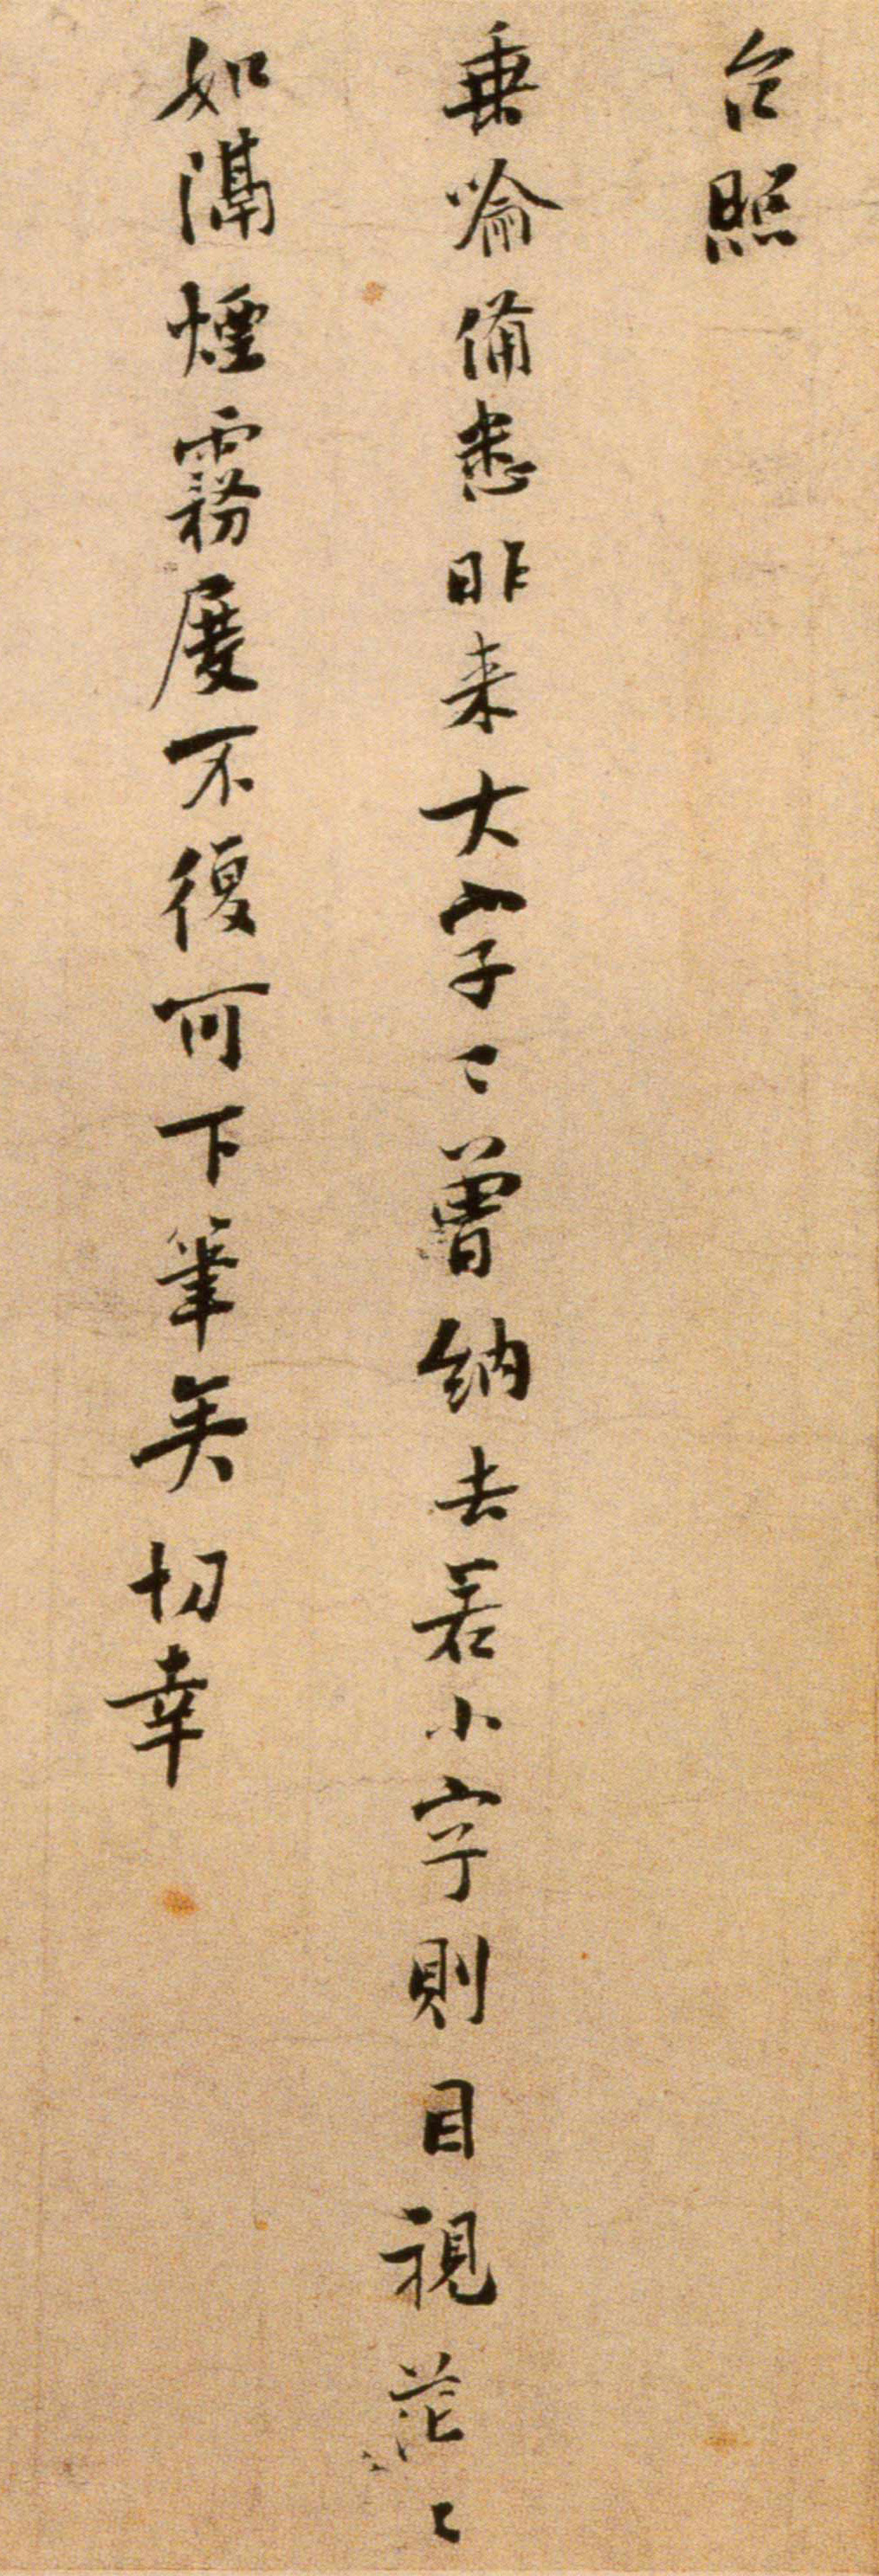 台照
垂喻備悉昨来大字〻曾納去若小字則目視茫〻
如隔煙霧度不復可下筆矣切幸